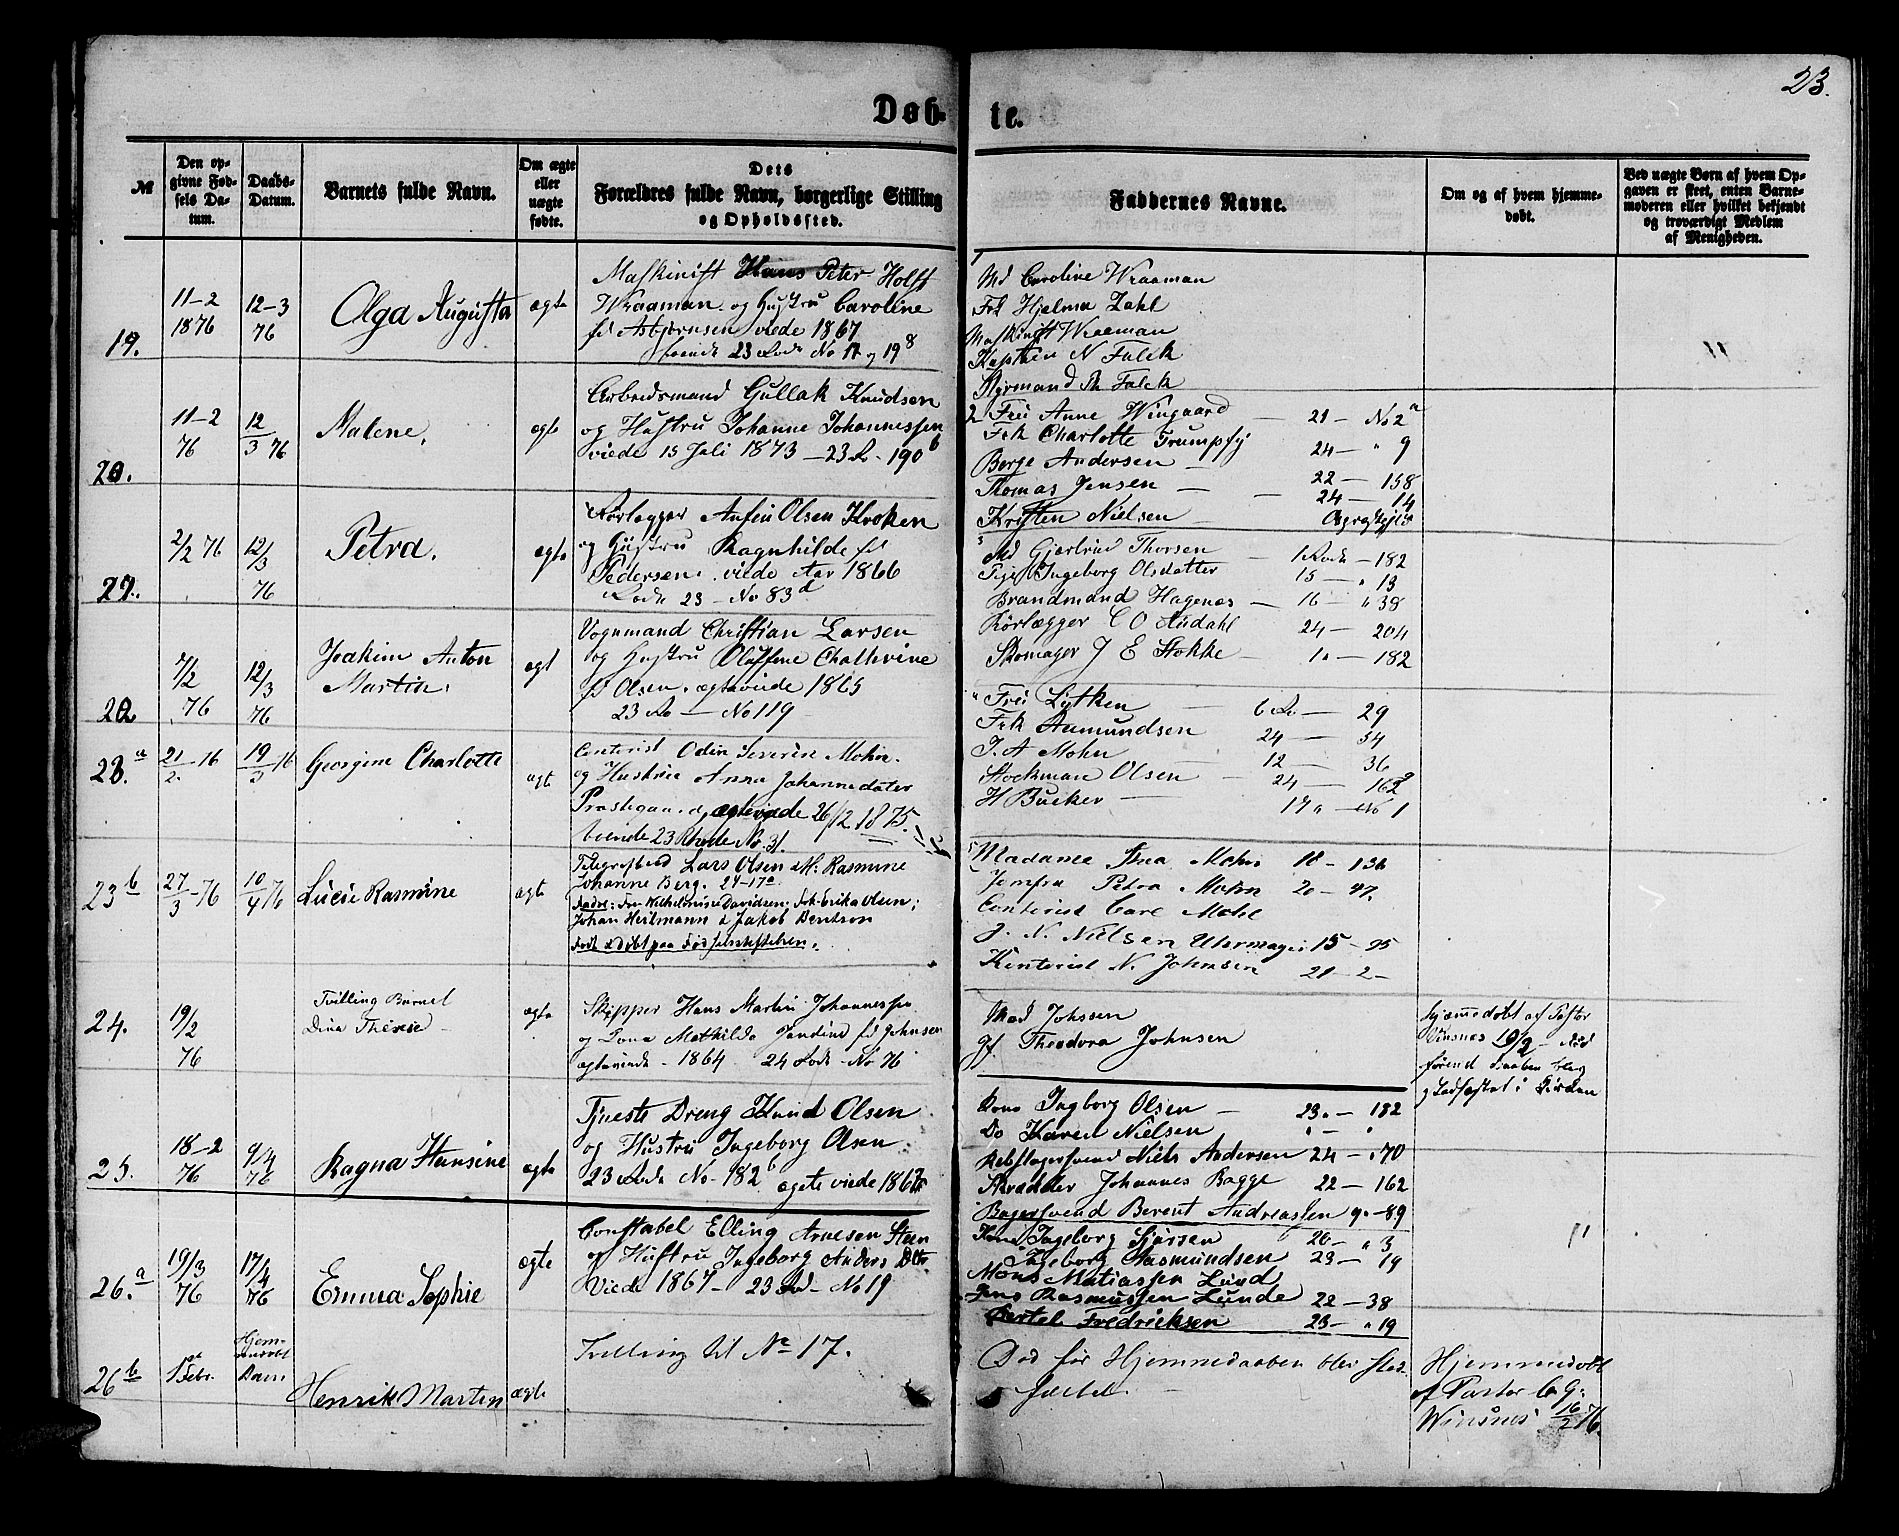 23.
Døb-
te.
№
Den op-
givne Fød-
sels Da-
tum.
Daabs-
Datum.
Barnets fulde Navn.
Om ægte
eller
uægte
fødte.
Dets
Forældres fulde Navn, borgerlige Stilling
og Opholdssted.
Faddernes Navne.
Om og af hvem hjemme-
døbt.
Ved uægte Børn af hvem Op-
gaven er skeet, enten Barne-
moderen eller hvilket bekjendt
og troværdigt Medlem
af Menigheden.
19.
11-2
1876
12-3
76
Olga Augusta
ægte
Maskinist Hans Peter Holst
Wraaman og Hustru Caroline
fd Asbjørnsen viede 1867
boende 23 Rode No
Md Caroline Wraaman
Frk Hjelma Zahl
Maskinist Wraaman
Kaptein N Falck
Styrmand Falck
20.
11-2
76
12
3 76
Malene.
ægte
Arbeidsmand Gullak Knudsen
og Hustru Johanne Johannessen
viede 15 Juli 1873 - 23 R. 190 b
2 Fru Anne Wingaard - 21 - No 2 a
Frk Charlotte Trumpfy 24 - " 9
Berge Andersen - 22 - 158
Thomas Jensen - 24 - 14
Kristen Nielsen -
2/2 76
12/3
76
Petra.
ægte
Rørlægger Anfin Olsen Kroken
og Hustru Ragnhilde fd
Pedersen. viede Aar 1866
Rode 23 - No 83 d
Md Gjertrud Thorsen - 1 Rode - 182
Pige Ingeborg Olsdatter 15 - " 13
Brandmand Hagenæs - 16 - " 38
Rørlægger C O Audahl 24 - 204
Skomager J E Stokke - 182
7/2
76
12/3
76
Joakim Anton
Martin.
ægt
Vognmand Christian Larsen
og Hustru Oluffine Cathrine
fd Olsen. ægteviede 1865
23 Ro - No 119
Fru Lytken - 6 Ro - 29
Frk Aamundsen 24 - 34
J. A Mohn - 12 - 36
Stockman Olsen - 24 - 162
H Bücker -
23. a
21/2 - 76
19/3 76
Georgine Charlotte
ægt
Contorist Odin Severin Mohn.
og Hustru Anna Johannedater
Prestegaard, ægteviede 26/12 1875.
boende 23 Rhode No. 31.
Madame Mohn 18 - 136
Jomfru Petra Mohn 20 - 47.
Contorist Carl Mohn
J. N. Nielsen Uhrmager 15 - 95
Kontorist N. Johnsen 21 - 2 -
23 b
27/3 - 76
10/4 76
Lucie Rasmine
ægte
Telegrafbud Lars Olsen & H: Rasmine
Johanne Berg. 24-17 a
Fadd: Fru Wilhelmine Davidsen; Frk. Erika Olsen;
Johan Heilmann & Jakob Berntson
Født & døbt paa Fødselsstiftelsen.
24.
19/2
76
Tvilling Barnet
Dina Therese
ægte
Skipper Hans Martin Johannessen
og Lona Mathilda Jandine fd Johnsen
ægteviede - 1864 24 Rode - No 76
Mad Johssen
Theodora Johnsen
hjemmedøbt af Pastor
Winsnes 19/2 - Død
førend Daaben blev
stadfæstet i Kirken
25.
18-2
76
9/4
76
Ragna Hansine
ægte
Tjeneste Dreng Knud Olsen
og Hustru Ingeborg Olsen.
23 Rode No - 182 b ægteviede 1867
Kone Ingborg Olsen - 23. - 182
Do Karen Nielsen " - "
Rebslagersvend Niels Andersen 24 - 170
Skrædder Johannes Bagge 22 - 162
Bagersvend Berent Andreassen 9 - 89
26. a
19/3
76
17/4
76
Emma Sophie
ægte
Constabel Elling Arnesen Steen
og Hustru Ingeborg Anders Dtr
Viede 1867 - 23 Rd - No 19
Kone Ingeborg Sjursen 26 - " 3
" Ingeborg Rasmundsen 23 - 19
Mons Matiassen Lund
Jens Rasmussen Lunde 22 - 38
Bertel Fredriksen 23 - " 19
26 b
1 Febr.
Hjem-
medøbt
Daan
Henrik Martin
ægte
Tvilling til No 17.
Død før Hjemmedaaben blev stad-
fæstet.
Hjemmedøbt
af Pastor C. G.
Winsnes 16/2 76.